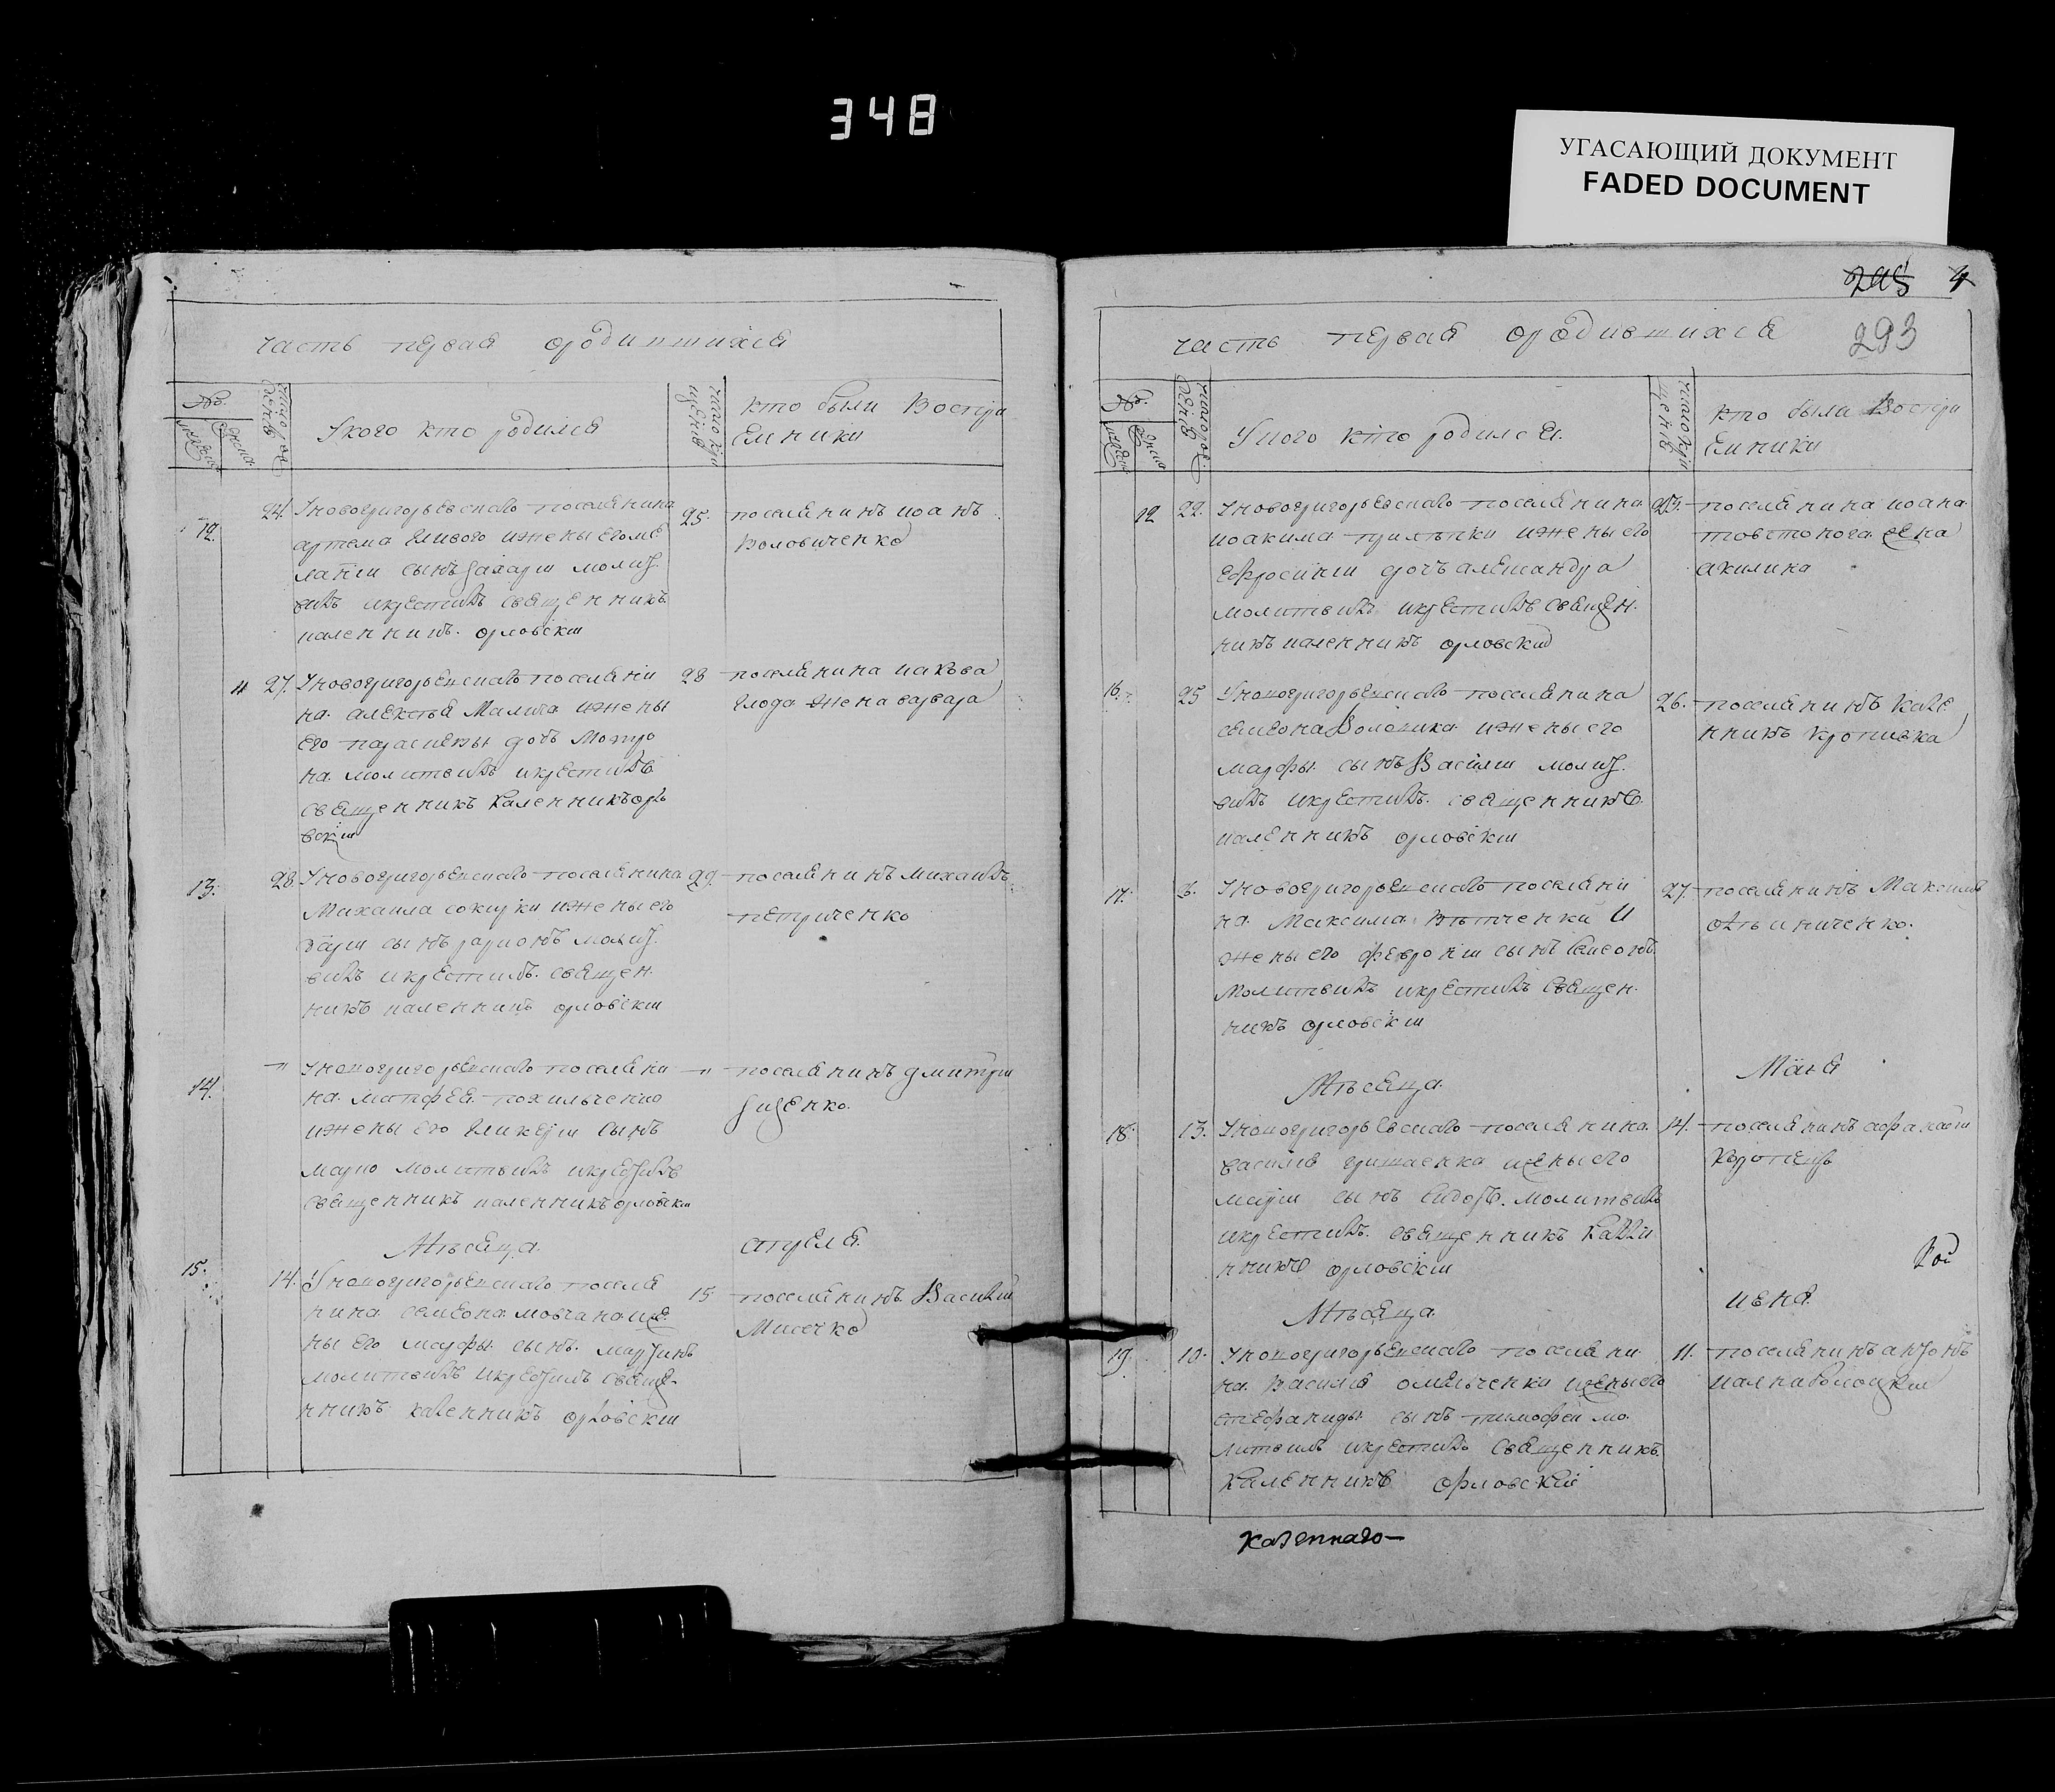 348
УГАСАЮЩИЙ ДОКУМЕНТ
FADED DOCUMENT
часть первая ородившихся
№
Укого кто родился
кто были Востри
емники
12.
24. Уновогригорьевскаго поселянина
артема Сливого ижены его ме
лании сынъ Захарiи молит
вилъ икрестилъ священникъ
каленникъ орловскiи
25. поселянинъ иоанъ
Воловиченко
11 27. Уновогригорьевскаго поселяни
на алексея Малига ижены
его параскевы дочь Мотро
на молитвилъ икрестилъ
священникъ каленникъ орло
вскiи
28 поселянина иакова
глода жена варвара
13. 28. Уновогригорьевскаго поселянина
Михаила сокирки ижены его
сынъ молит
вилъ икрестилъ священ
никъ каленникъ орловскiи
29. поселянинъ михаилъ
петриченко
14. -"- Уновогригорьевскаго поселяни
на матфея похильченко
ижены его гликерiи сынъ
марко молитвилъ икрестилъ
священникъ каленникъ орловскiи
-"- поселянинъ дмитрiи
Месяца апреля
15. 14. Уновогригорьевскаго поселя
нина семеона мовчана иже
ны его марфы сынъ мартинъ
молитвилъ икрестилъ свяще
нникъ каленникъ орловскiи
15 поселянинъ Василiи
Мисечко
4
293
часть первая ородившихся
№
Укого кто родился
кто были Востри
емники
12 22. Уновогригорьевскаго поселянина
иоакима прилепки ижены его
Ефросинiи дочь александра
молитвилъ икрестилъ священ
никъ каленникъ орловскiи
23. поселянина иоана
товстонога жена
акилина
16. 25 Уновогригорьевскаго поселянина
семеона Воловика ижены его
марфы сынъ Василiи молит
вилъ икрестилъ священникъ
каленникъ орловскiи
26. поселянинъ кале
нникъ кропивка
17. Уновогригорьевскаго поселяни
на Максима и
жены его февронiи сынъ
Молитвилъ икрестилъ священ
никъ орловскiи
27. поселянинъ Максимъ
Месяца Маiя
18. 13. Уновогригорьевскаго поселянина
василiя грищенка ижены его
марiи сынъ молитвилъ
икрестилъ священникъ кале
нникъ орловскiи
14. поселянинъ афанасiи
Месяца июня
19. 10. Уновогригорьевскаго поселяни
на Василiя омельченки ижены его
стефаниды сынъ тимофеи мо
литвилъ икрестилъ священникъ
Каленникъ Орловскiй
11. поселянинъ антонъ
казеннаго